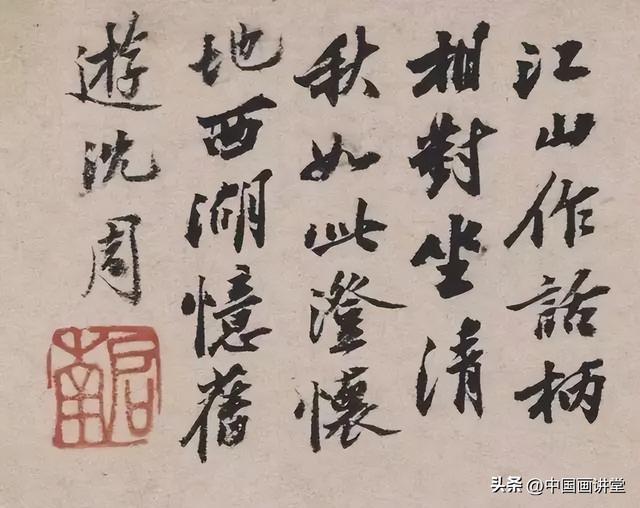 江山作話柄
相對坐清
秋如此澄懷
地西湖憶舊
遊沈周
啟南
头条@中国画讲堂